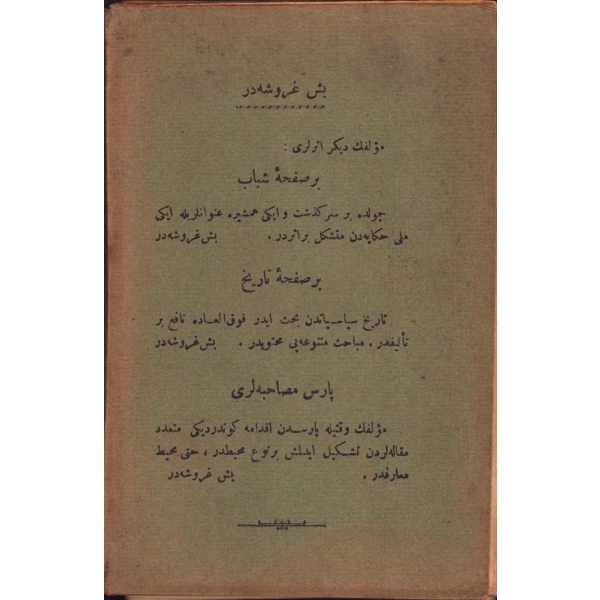 بش غروشه‌در
مؤلفك ديكر اثرلرى :
بر صفحهٔ شباب
چولده بر سركذشت و ايكى همشيره عنوانلريله ايكى
ملى حكايه‌دن متشكل بر اثردر . بش غروشه‌در
بر صفحهٔ تاريخ
تاريخ سياسياتدن بحث ايدر فوق‌العاده نافع بر
تأليفدر . مباحث متنوعه‌يى محتويدر . بش غروشه‌در
پارس مصاحبه‌لرى
مؤلفك وقتيله پارسدن اقدامه كوندرديكى متعدد
مقاله‌لردن تشكيل ايدلمش بر نوع محيطدر ، حتى محيط
معارفدر . بش غروشه‌در